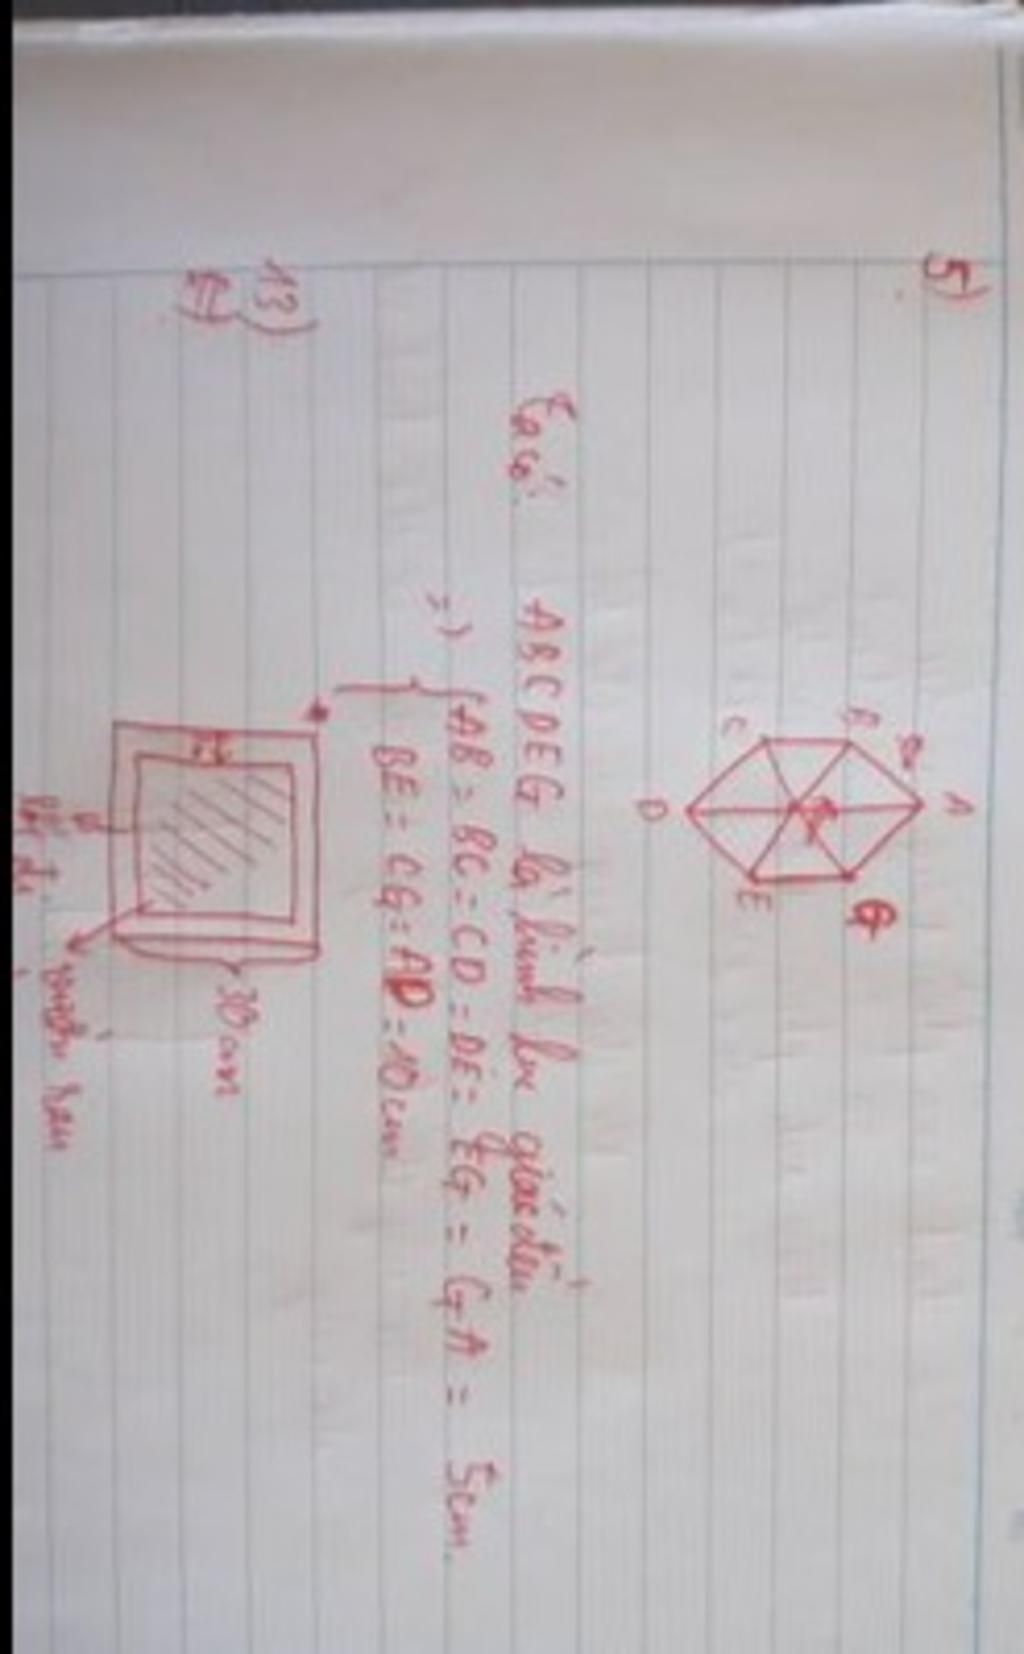 5)
A
B
G
C
E
D
Ta có:
ABCDEG là hình lục giác đều
=> { AB = BC = CD = DE = EG = GA = 5cm.
BE = CG = AD = 10cm
13)
30 cm
vườn rau